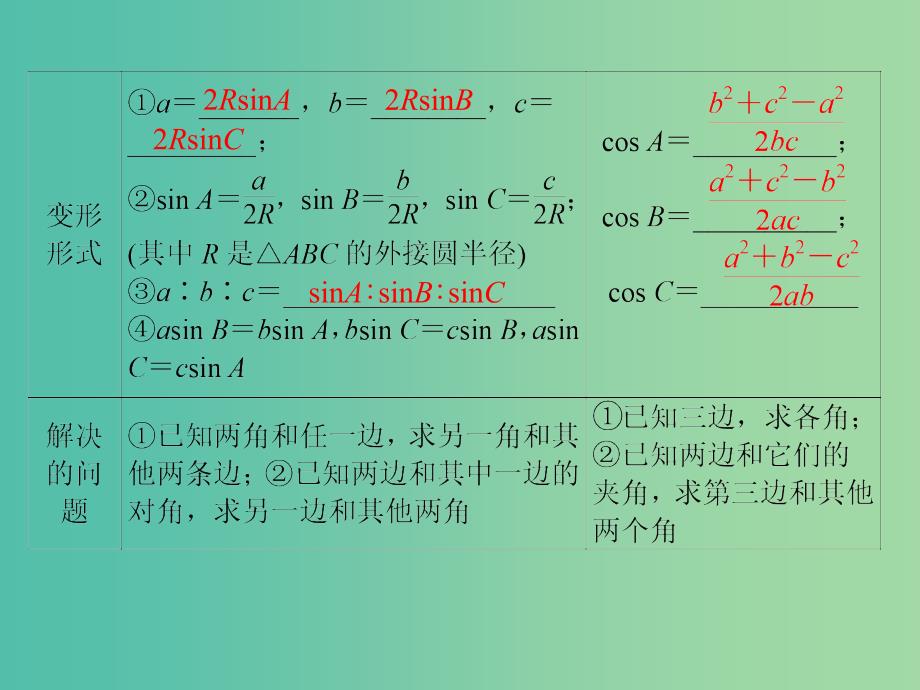 变形
形式
①a＝2RsinA，b＝2RsinB，c＝
2RsinC；
②sin A＝a/2R，sin B＝b/2R，sin C＝c/2R；
(其中 R 是△ABC 的外接圆半径)
③a∶b∶c＝sinA∶sinB∶sinC
④asin B＝bsin A，bsin C＝csin B，asin
C＝csin A
cos A＝(b²＋c²－a²)/2bc；
cos B＝(a²＋c²－b²)/2ac；
cos C＝(a²＋b²－c²)/2ab
解决
的问
题
①已知两角和任一边，求另一角和其
他两条边；②已知两边和其中一边的
对角，求另一边和其他两角
①已知三边，求各角；
②已知两边和它们的
夹角，求第三边和其他
两个角